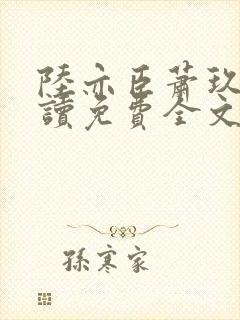 陸亦臣蕭玖
讀免費全文
孫寒家